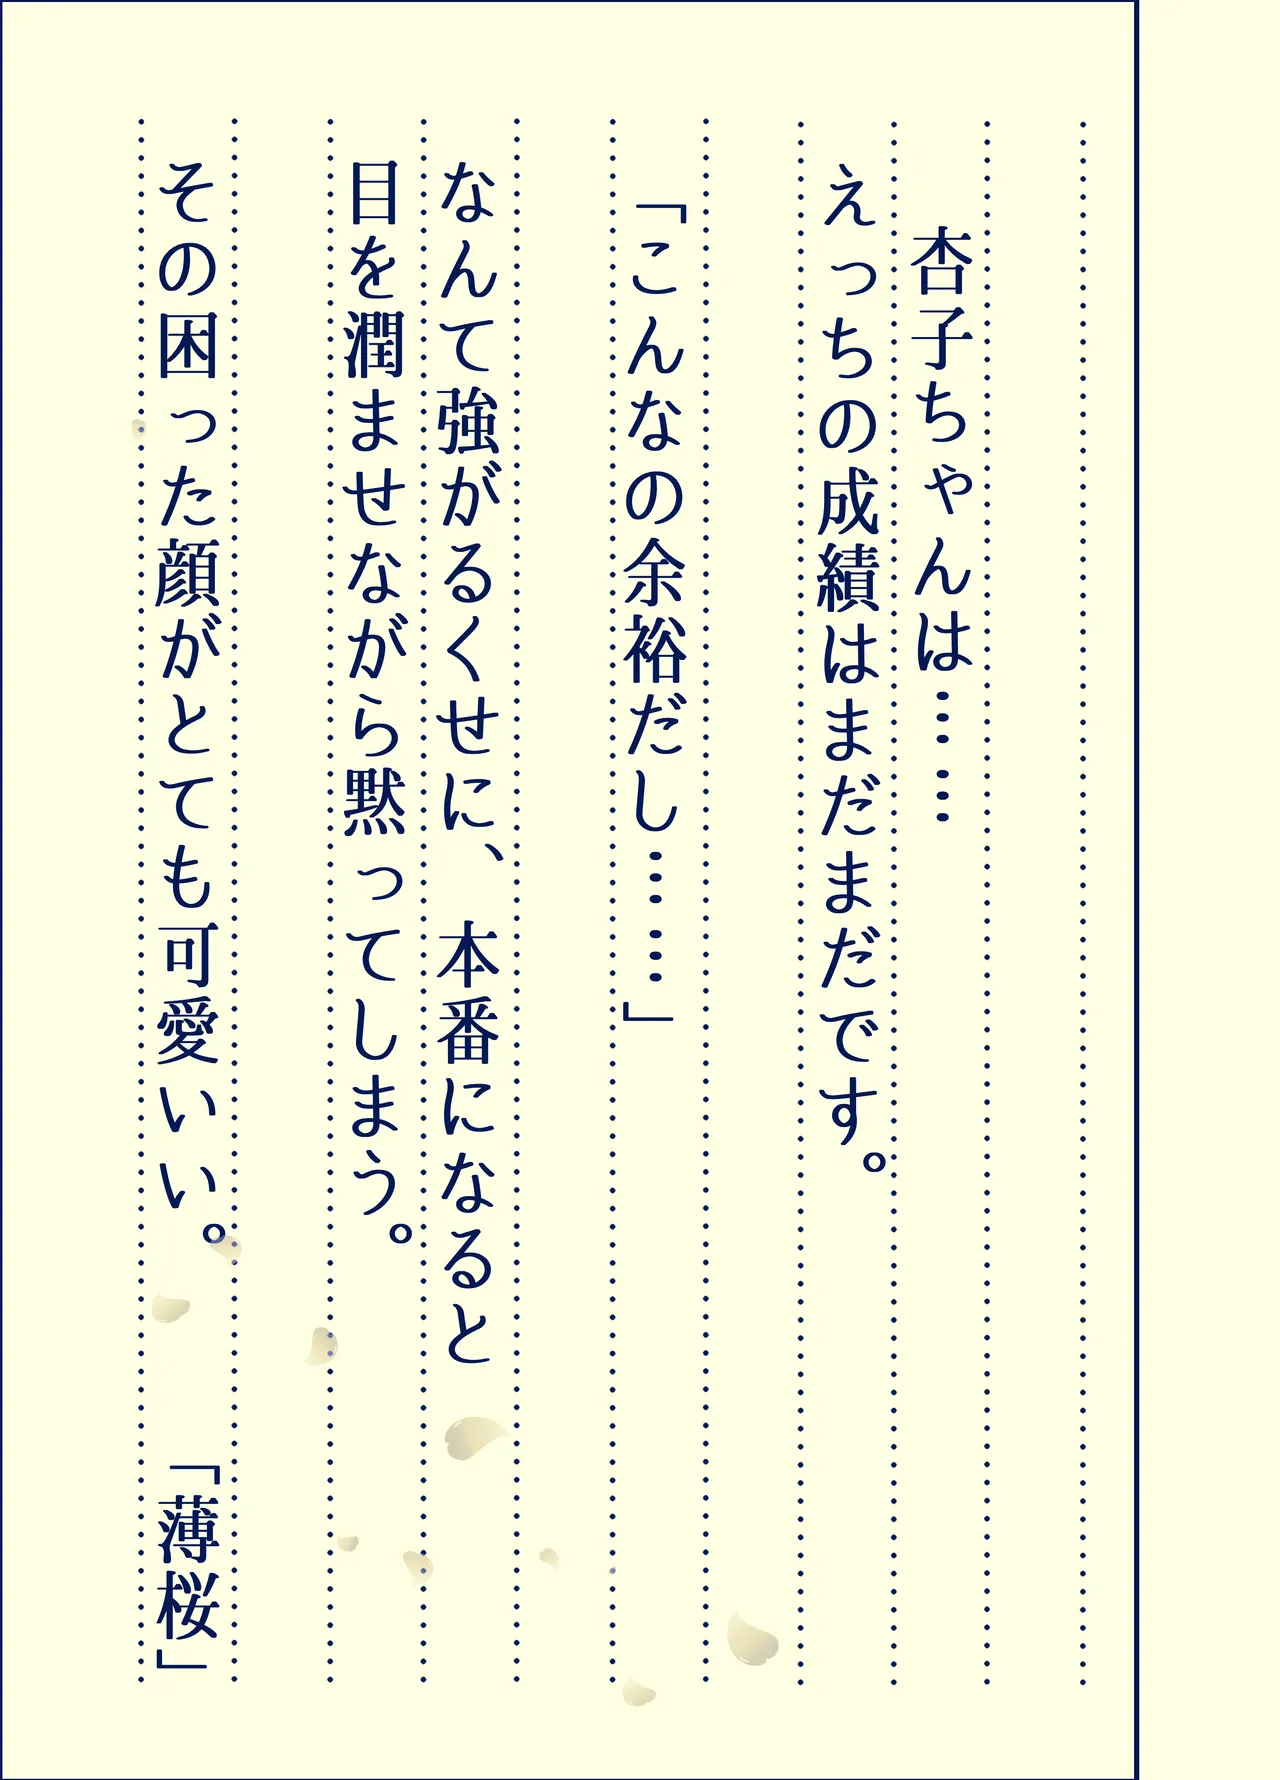 杏子ちゃんは……
えっちの成績はまだまだです。
「こんなの余裕だし……」
なんて強がるくせに、本番になると
目を潤ませながら黙ってしまう。
その困った顔がとても可愛いい。 「薄桜」